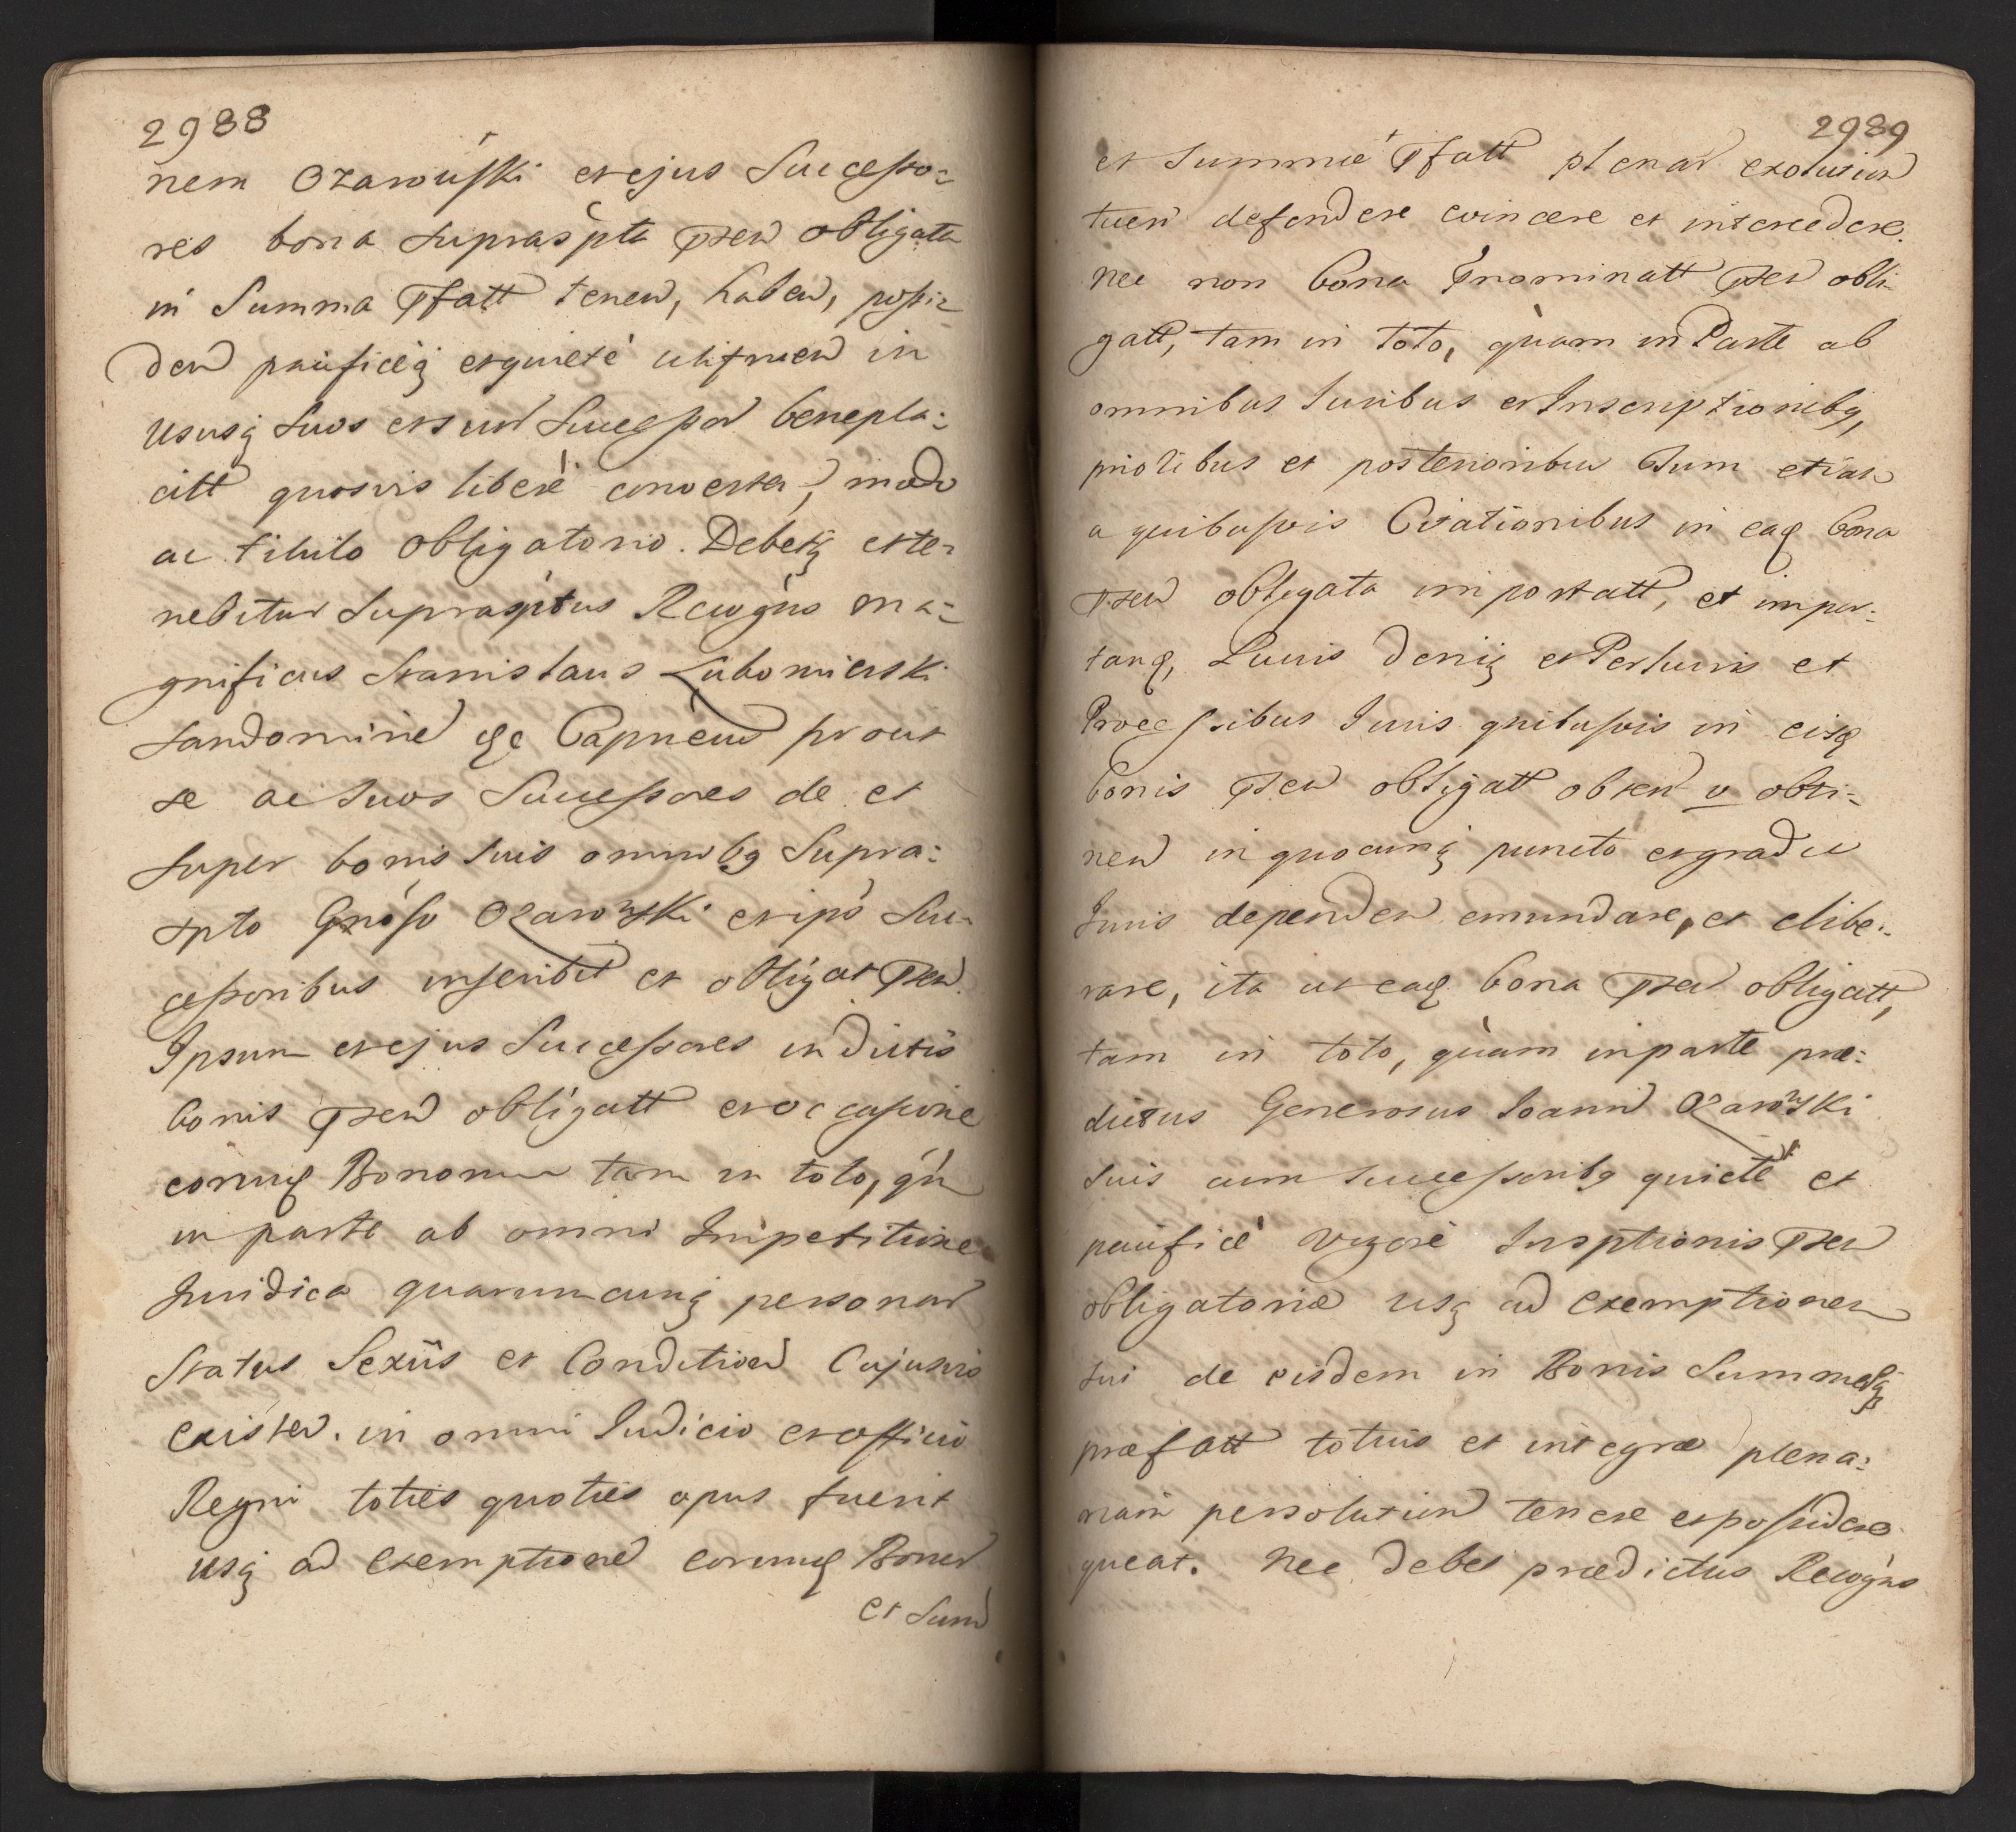 2988
nem Ozarowski et ejus Successo=
res bona supraspta pten obligata
in Summa Pfatt tenen, haben, possi=
den pacificèq et quietè utifruen in
ususq suos et suor Successor benepla=
citt quosvis liberè converten, modo
ac titulo obligatorio. Debetq et te=
nebitur supraspitus Recogns ma=
gnificus Stanislaus Lubomierski
Sandomirien &c Capneus prout
se ac suos Successores de et
super bonis suis omnibq supra=
spto Gnoso Ozarowski et ipo Suc=
cessoribus inscribit et obligat pten
Ipsum et ejus Successores in dictis
bonis pten obligatt et occasione
eorunq Bonorum tam in toto, qm
in parte ab omni Impetitione
Juridica quaruncunq personar
Status Sexûs et Condition Cujusvis
existen. in omni Judicio et officio
Regni toties quoties opus fuerit
usq ad exemptionem eorunq Bonor
et Sum
2989
et Summæ Pfatt plenar exolution
tueri defendere evincere et intercedere.
Nec non bona Prnominatt pten obli=
gatt, tam in toto, quàm in Parte ab
omnibus Juribus et Inscriptionibq,
prioribus et posterioribus Tum etiam
a quibusvis Citationibus in eaq bona
pten obligata importatt, et impor=
tanq, Lucris deniq et Perlucris et
Processibus Juris quibusvis in eisq
bonis pten obligatt obten v obti=
nen in quocunq puncto et gradu
Juris dependen emundare, et elibe=
rare, ita ut eaq bona pten obligatt,
tam in toto, quàm in parte præ=
dictus Generosus Joann Ozarowski
suis cum successoribq quietè et
pacificè vigore Insptionis pten
obligatoriæ usq ad exemptionem
sui de eisdem in Bonis Summæq
præfatt totius et integræ plena=
riam persolution tenere et possidere
queat. Nec debet prædictus Recogns